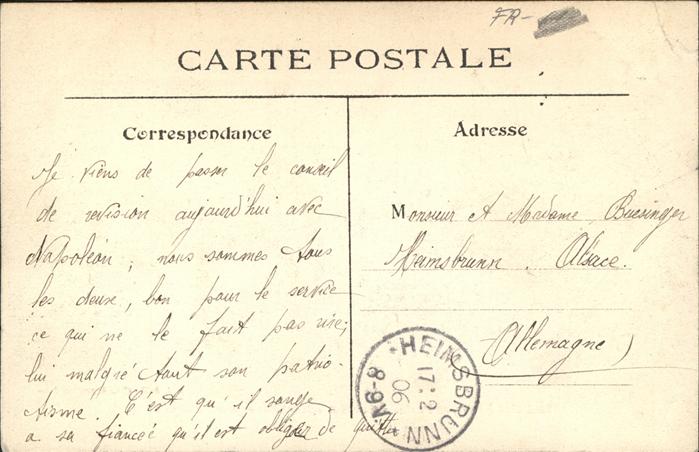 FR-
CARTE POSTALE
Correspondance
Je viens de passer le conseil
de revision aujourd'hui avec
Napoléon; nous sommes tous
les deux, bon pour le service
ce qui ne le fait pas rire;
lui malgré tout son patrio-
tisme. C'est qu'il songe
a sa fiancée qu'il est obligé de quitter
Adresse
Monsieur et Madame Buesinger
Heimsbrunn. Alsace.
(Allemagne)
HEIMSBRUNN
17.2
06
8-9V